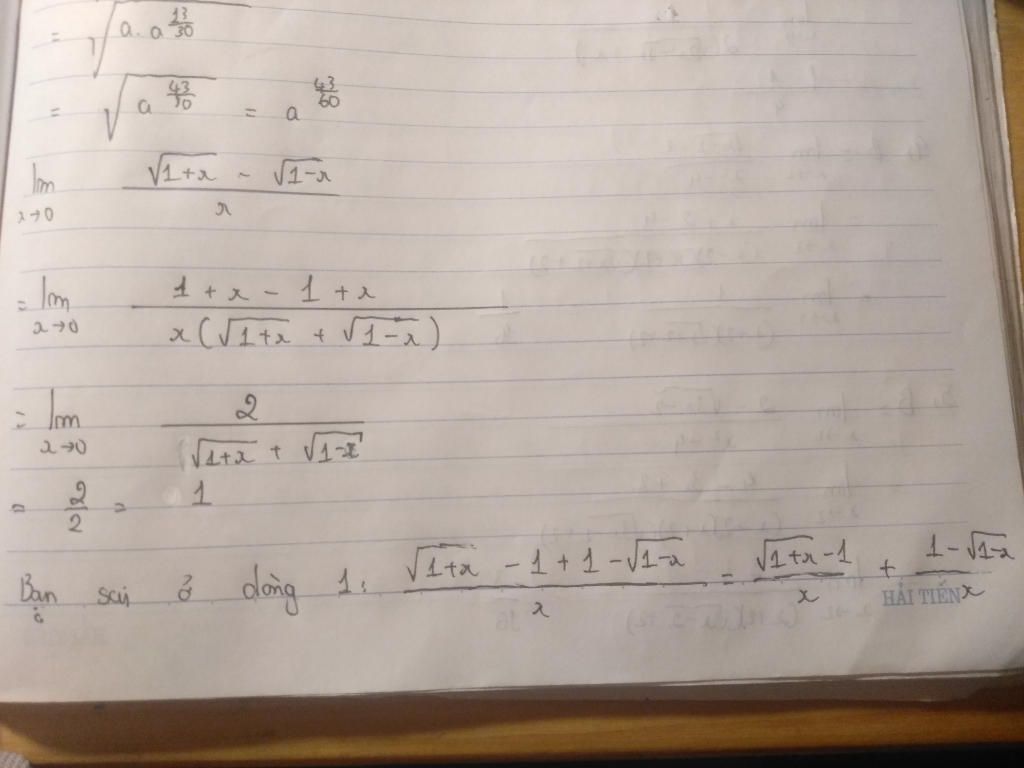 = √(a . a^(13/30))
= √(a^(43/30)) = a^(43/60)
lim x→0 (√(1+x) - √(1-x)) / x
= lim x→0 (1 + x - 1 + x) / (x(√(1+x) + √(1-x)))
= lim x→0 2 / (√(1+x) + √(1-x))
= 2/2 = 1
Bạn sai ở dòng 1: (√(1+x) - 1 + 1 - √(1-x)) / x = (√(1+x) - 1) / x + (1 - √(1-x)) / x
HẢI TIẾN